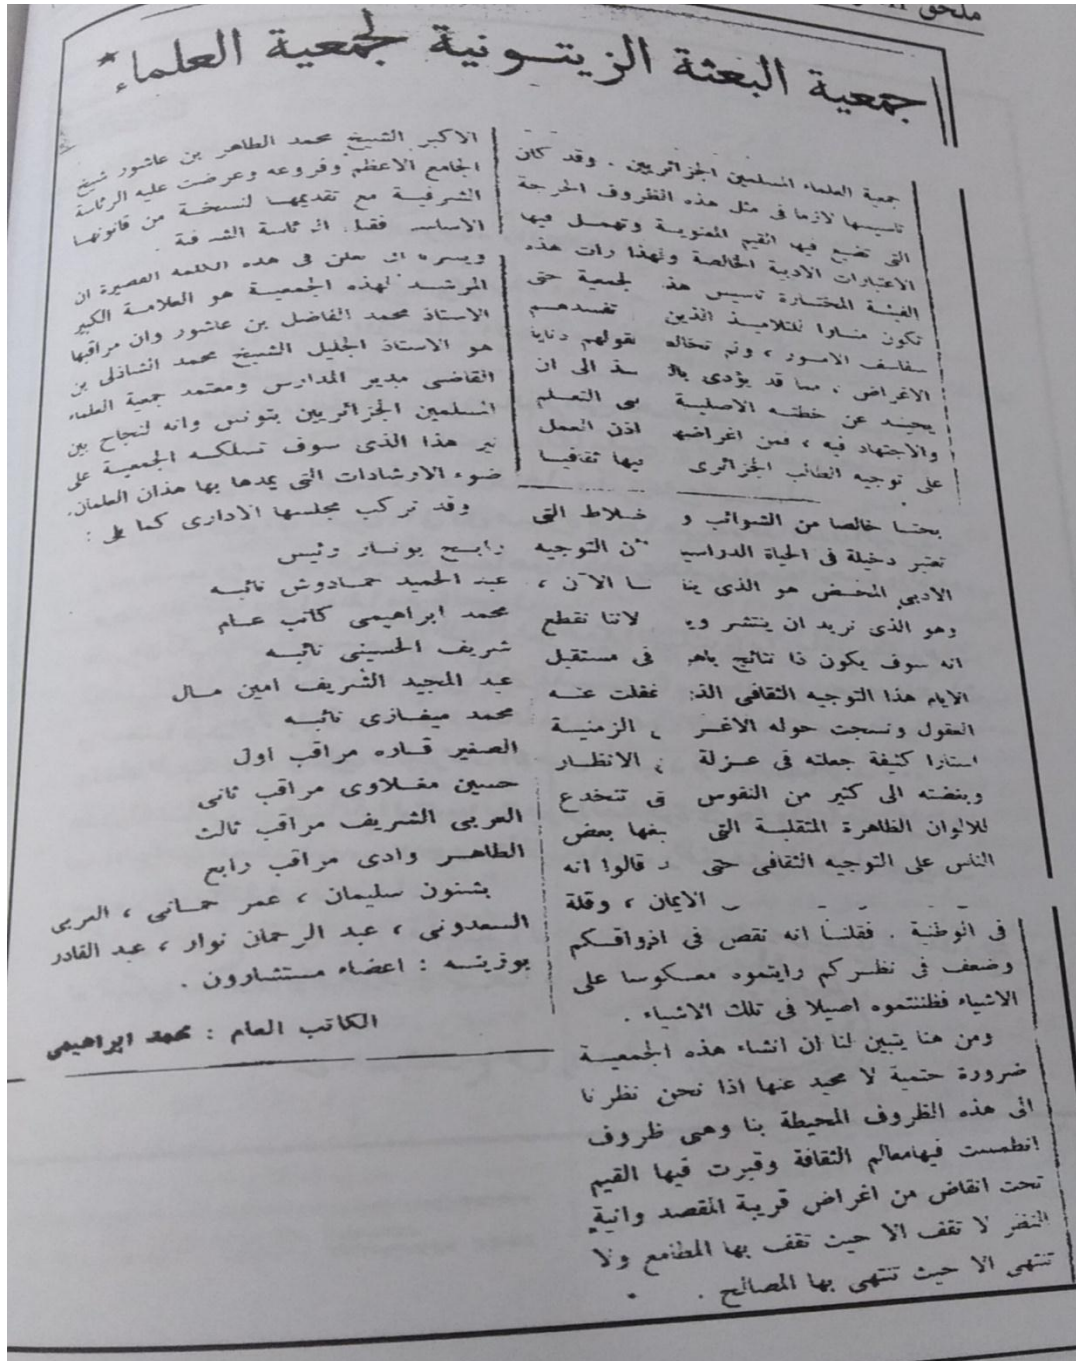 ملحق
جمعية البعثة الزيتونية لجمعية العلماء *
جمعية العلماء المسلمين الجزائريين . وقد كان
تاسيسها لازما فى مثل هذه الظروف الحرجة
التى تضيع فيها القيم المعنوية وتهمل فيها
الاعتبارات الادبية الخالصة ولهذا رات هذه
الفئة المختارة تاسيس هذ لجمعية حتى
تكون منارا للتلاميذ الذين تفسدهم
سفاسف الامور ، ولم تخالط عقولهم دنايا
الاغراض . مما قد يؤدى بال ـذ الى ان
يحيد عن خطته الاصلية ـى التعلم
والاجتهاد فيه ، فمن اغراضه اذن العمل
على توجيه الطالب الجزائرى ـيها ثقافيا
بحتا خالصا من الشوائب و خلاط التى
تعتبر دخيلة فى الحياة الدراسي ـن التوجيه
الادبى المحض هو الذى ين ـا الآن ،
وهو الذى نريد ان ينتشر وي لاننا نقطع
انه سوف يكون ذا نتائج باهـ فى مستقبل
الايام هذا التوجيه الثقافى الذ غفلت عنه
العقول ونسجت حوله الاغر الزمنية
استارا كثيفة جعلته فى عزلة الانظار
وبغضته الى كثير من النفوس ـى تنخدع
للالوان الظاهرة المتقلبة التى ـغها بعض
الناس على التوجيه الثقافى حتى ـد قالوا انه
الايمان ، وقلة
فى الوطنية . فقلنا انه نقص فى اذواقكم
وضعف فى نظركم رايتموه معكوسا على
الاشياء فظننتموه اصيلا فى تلك الاشياء .
ومن هنا يتبين لنا ان انشاء هذه الجمعية
ضرورة حتمية لا محيد عنها اذا نحن نظرنا
الى هذه الظروف المحيطة بنا وهى ظروف
انطمست فيهامعالم الثقافة وقبرت فيها القيم
تحت انقاض من اغراض قريبة المقصد وانية
النضر لا تقف الا حيث تقف بها المطامع ولا
تنتهى الا حيث تنتهى بها المصالح .
الاكبر الشيخ محمد الطاهر بن عاشور شيخ
الجامع الاعظم وفروعه وعرضت عليه الرئاسة
الشرفية مع تقديمها لنسخة من قانونها
الاساسى فقبل الرئاسة الشرفية .
ويسره ان تعلن فى هذه الكلمة القصيرة ان
المرشد لهذه الجمعية هو العلامة الكبير
الاستاذ محمد الفاضل بن عاشور وان مراقبها
هو الاستاذ الجليل الشيخ محمد الشاذلى بن
القاضى مدير المدارس ومعتمد جمعية العلماء
المسلمين الجزائريين بتونس وانه لنجاح بين
نير هذا الذى سوف تسلكه الجمعية على
ضوء الارشادات التى يمدها بها هذان العلمان.
وقد تركب مجلسها الادارى كما يلى :
رابح بونار رئيس
عبد الحميد حمادوش نائبه
محمد ابراهيمى كاتب عام
شريف الحسينى نائبه
عبد المجيد الشريف امين مال
محمد ميغازى نائبه
الصغير قاره مراقب اول
حسين مغلاوى مراقب ثانى
العربى الشريف مراقب ثالث
الطاهر وادى مراقب رابع
بشنون سليمان ، عمر حمانى ، العربى
السعدونى ، عبد الرحمان نوار ، عبد القادر
بوزينه : اعضاء مستشارون .
الكاتب العام : محمد ابراهيمى